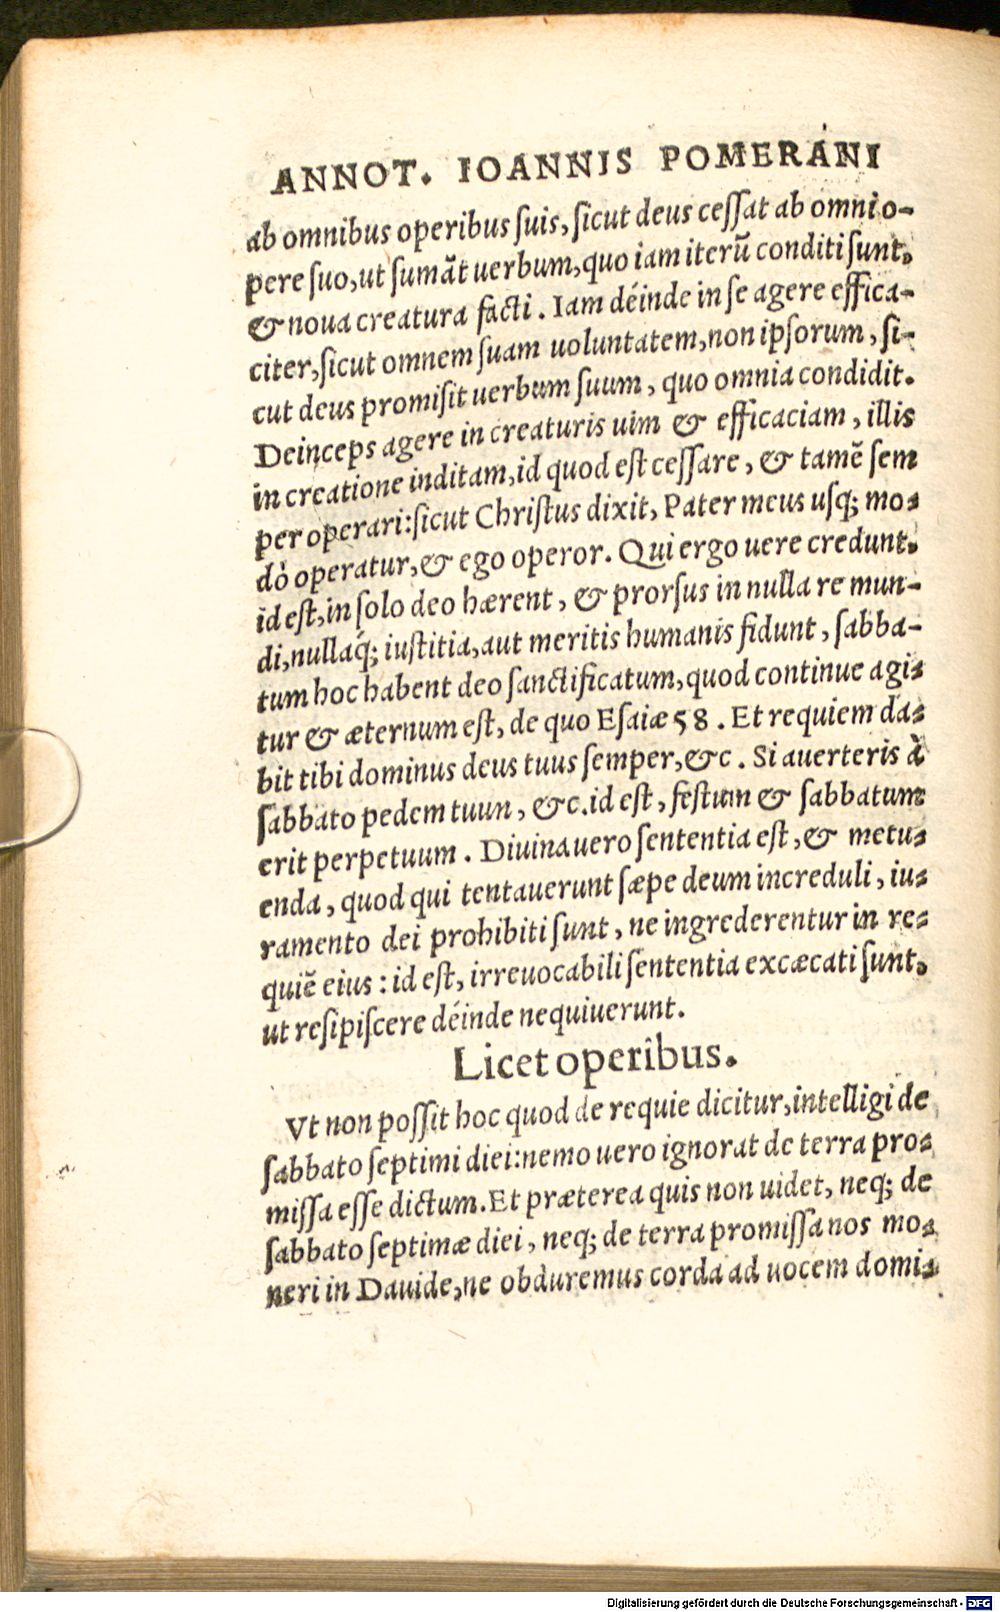 ANNOT. IOANNIS POMERANI
ab omnibus operibus ſuis, ſicut deus ceſſat ab omni o-
pere ſuo, ut ſumãt uerbum, quo iam iterũ conditi ſunt,
& noua creatura facti. Iam déinde in ſe agere effica-
citer, ſicut omnem ſuam uoluntatem, non ipſorum, ſi-
cut deus promiſit uerbum ſuum, quo omnia condidit.
Deinceps agere in creaturis uim & efficaciam, illis
in creatione inditam, id quod eſt ceſſare, & tamẽ ſem
per operari: ſicut Chriſtus dixit, Pater meus uſq; mo-
dò operatur, & ego operor. Qui ergo uere credunt,
id eſt, in ſolo deo hærent, & prorſus in nulla re mun-
di, nullaq́; iuſtitia, aut meritis humanis fidunt, ſabba-
tum hoc habent deo ſanctificatum, quod continue agi-
tur & æternum eſt, de quo Eſaiæ 58. Et requiem da-
bit tibi dominus deus tuus ſemper, &c. Si auerteris à
ſabbato pedem tuun, &c. id eſt, feſtum & ſabbatum
erit perpetuum. Diuina uero ſententia eſt, & metu-
enda, quod qui tentauerunt ſæpe deum increduli, iu-
ramento dei prohibiti ſunt, ne ingrederentur in re-
quiẽ eius: id eſt, irreuocabili ſententia excæcati ſunt,
ut reſipiſcere déinde nequiuerunt.
Licet operibus.
Vt non poſſit hoc quod de requie dicitur, intelligi de
ſabbato ſeptimi diei: nemo uero ignorat de terra pro-
miſſa eſſe dictum. Et præterea quis non uidet, neq; de
ſabbato ſeptimæ diei, neq; de terra promiſſa nos mo-
neri in Dauide, ne obduremus corda ad uocem domi-
Digitalisierung gefördert durch die Deutsche Forschungsgemeinschaft - DFG